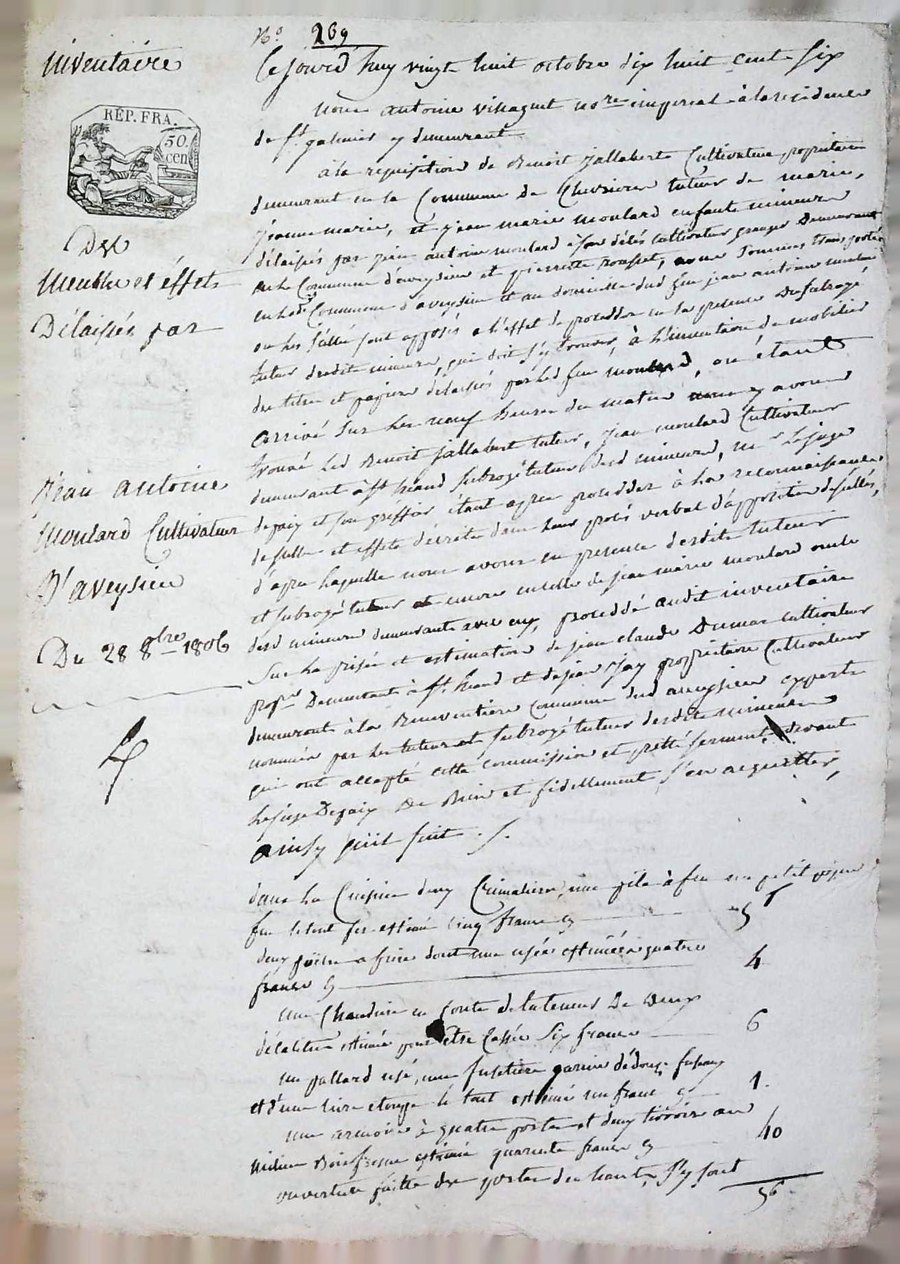 N.º 269
Inventaire
RÉP. FRA.
50.
cen
Des
Meubles et éffets
Délaissés par
Jean antoine
Moulard Cultivateur
D'aveysieu
Du 28 8bre 1806
Ce jourd'huy vingt huit octobre dix huit cent six
nous antoine no.re imperial à la residence
de St galmier y demeurant
à la requisition de Benoit Jallabert Cultivateur proprietaire
demeurant en la Commune de Chevrieres tuteur de marie,
Jeanne marie, et Jean marie moulard enfants mineurs
délaissés par jean antoine moulard cultivateur granger Demeurant
en la Commune d'aveysieu et pierrette rousset, nous sommes transportés
en lad. Commune d'aveysieu et au domicille dud feu jean antoine moulard
ou les scellés sont apposés a l'effet de proceder en la presence du subrogé
tuteur desdits mineurs, qui doit s'y trouver, à l'inventaire du mobilier
des titres et papiers délaissés par led feu moulard, ou étant
arrivé sur les neuf heures du matin nous y avons
trouvé led Benoit Jallabert tuteur, jean moulard Cultivateur
demeurant à St heand subrogé tuteur desd mineurs, mr le juge
de paix et son greffier étant apres proceder à la reconnaissance
de scellés et effets décrits dans leur procès verbal d'apposition de scellés,
d'apres laquelle nous avons en presence desdits tuteur
et subrogé tuteur et encore en celle de jean marie moulard oncle
desd mineurs demeurants avec eux, proceddé audit inventaire
sur la prisée et estimation de jean claude Dumas cultivateur
propre Demeurant à St heand et de jean Jay proprietaire Cultivateur
demeurant à la Commune dud aveysieu experts
nommés par les tuteur et subrogé tuteur desdits mineurs
qui ont accepté cette commission et prêté serment devant
le juge De paix De Bien et fidellement s'en acquitter,
ainsy qu'il suit
dans la Cuisine deux Cremalieres, une pele à feu un petit
feu le tout fer estimé cinq francs 5
deux poeles a frire dont une usée estimées quatre
francs 4
une Chaudiere en fonte de la teneur De deux
estimée pour être cassée six francs 6
un pallard usé, une garnie de douze
et d'une livre le tout estimé un franc 1.
une armoire à quatre portes et deux tiroirs au
milieu Bois estimée quarente francs 40
ouverture faitte des portes du haut, s'y sont
56